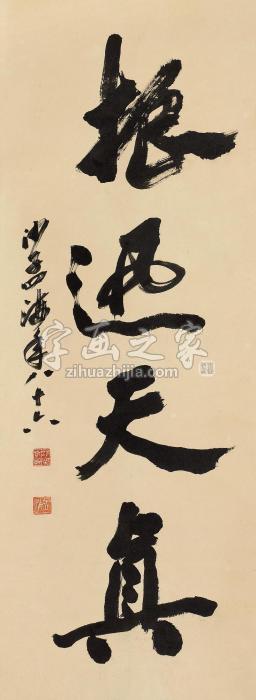 振迅天真
沙孟海年八十六
字画之家
zihuazhijia.com